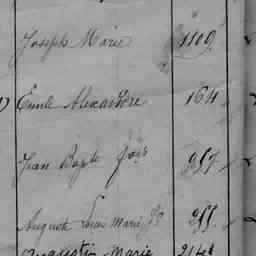 Joseph Marie 1109
Emile Alexandre 164
Jean Bapte fçois 957
Auguste Louis Marie Jh 255
Augustin Marie 2148